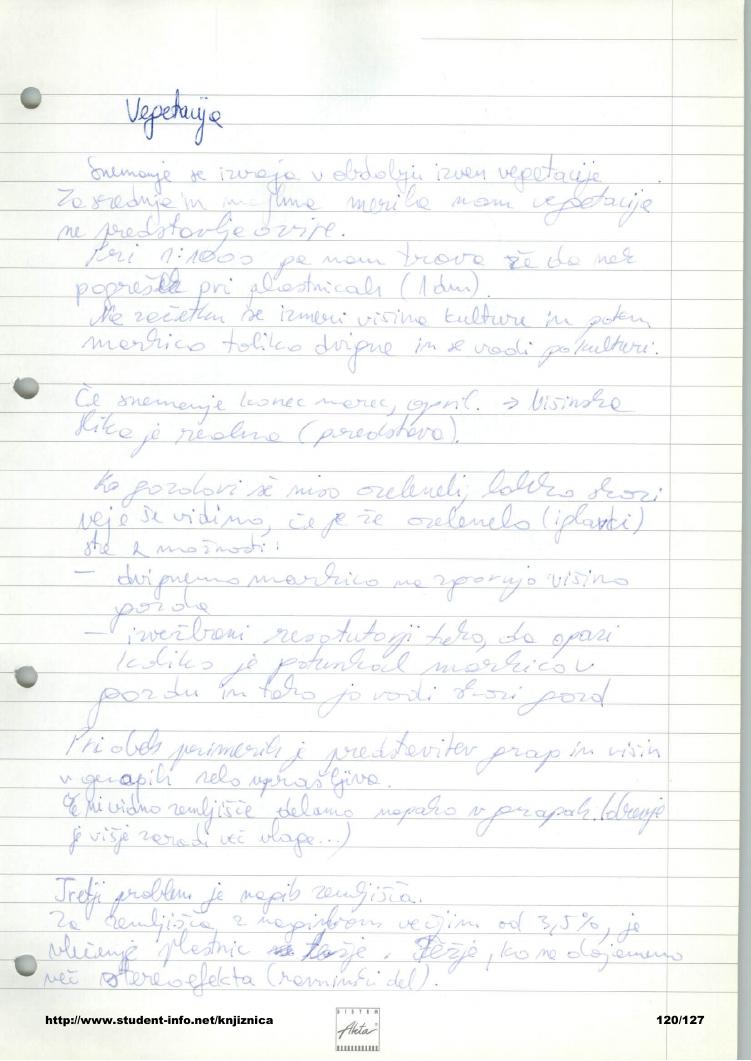 Vegetacija
Snemanje se izvaja v obdobju izven vegetacije
Za srednja in majhna merila nam vegetacija
ne predstavlja ovire.
Pri 1:1000 pa nam trava že da nek
pogrešek pri plastnicah (1dm).
Na začetku se izmeri višina kulture in potem
markico toliko dvigne in se vodi po kulturi.
Če snemanje konec marec, april. → Višinska
slika je realna (predstava).
Ko gozdovi še niso ozeleneli, lahko skozi
veje še vidimo, če je že ozelenelo (iglavci)
sta 2 možnosti:
- dvignemo markico na zgornjo višino
gozda
- izvežbani restitutorji tako, da opazi
koliko je potunkal markico v
gozdu in tako jo vodi skozi gozd
Pri obeh primerih je predstavitev grap in višin
v grapah zelo vprašljiva.
Če ni vidno zemljišče delamo napako v grapah. (drevje
je višje zaradi več vlage...)
Tretji problem je nagib zemljišča.
Za zemljišča z nagibom večjim od 3,5%, je
vlečenje plastnic težje, ko ne dojamemo
več stereoefekta (ravninski del).
http://www.student-info.net/knjiznica
SISTEM
Akta
120/127